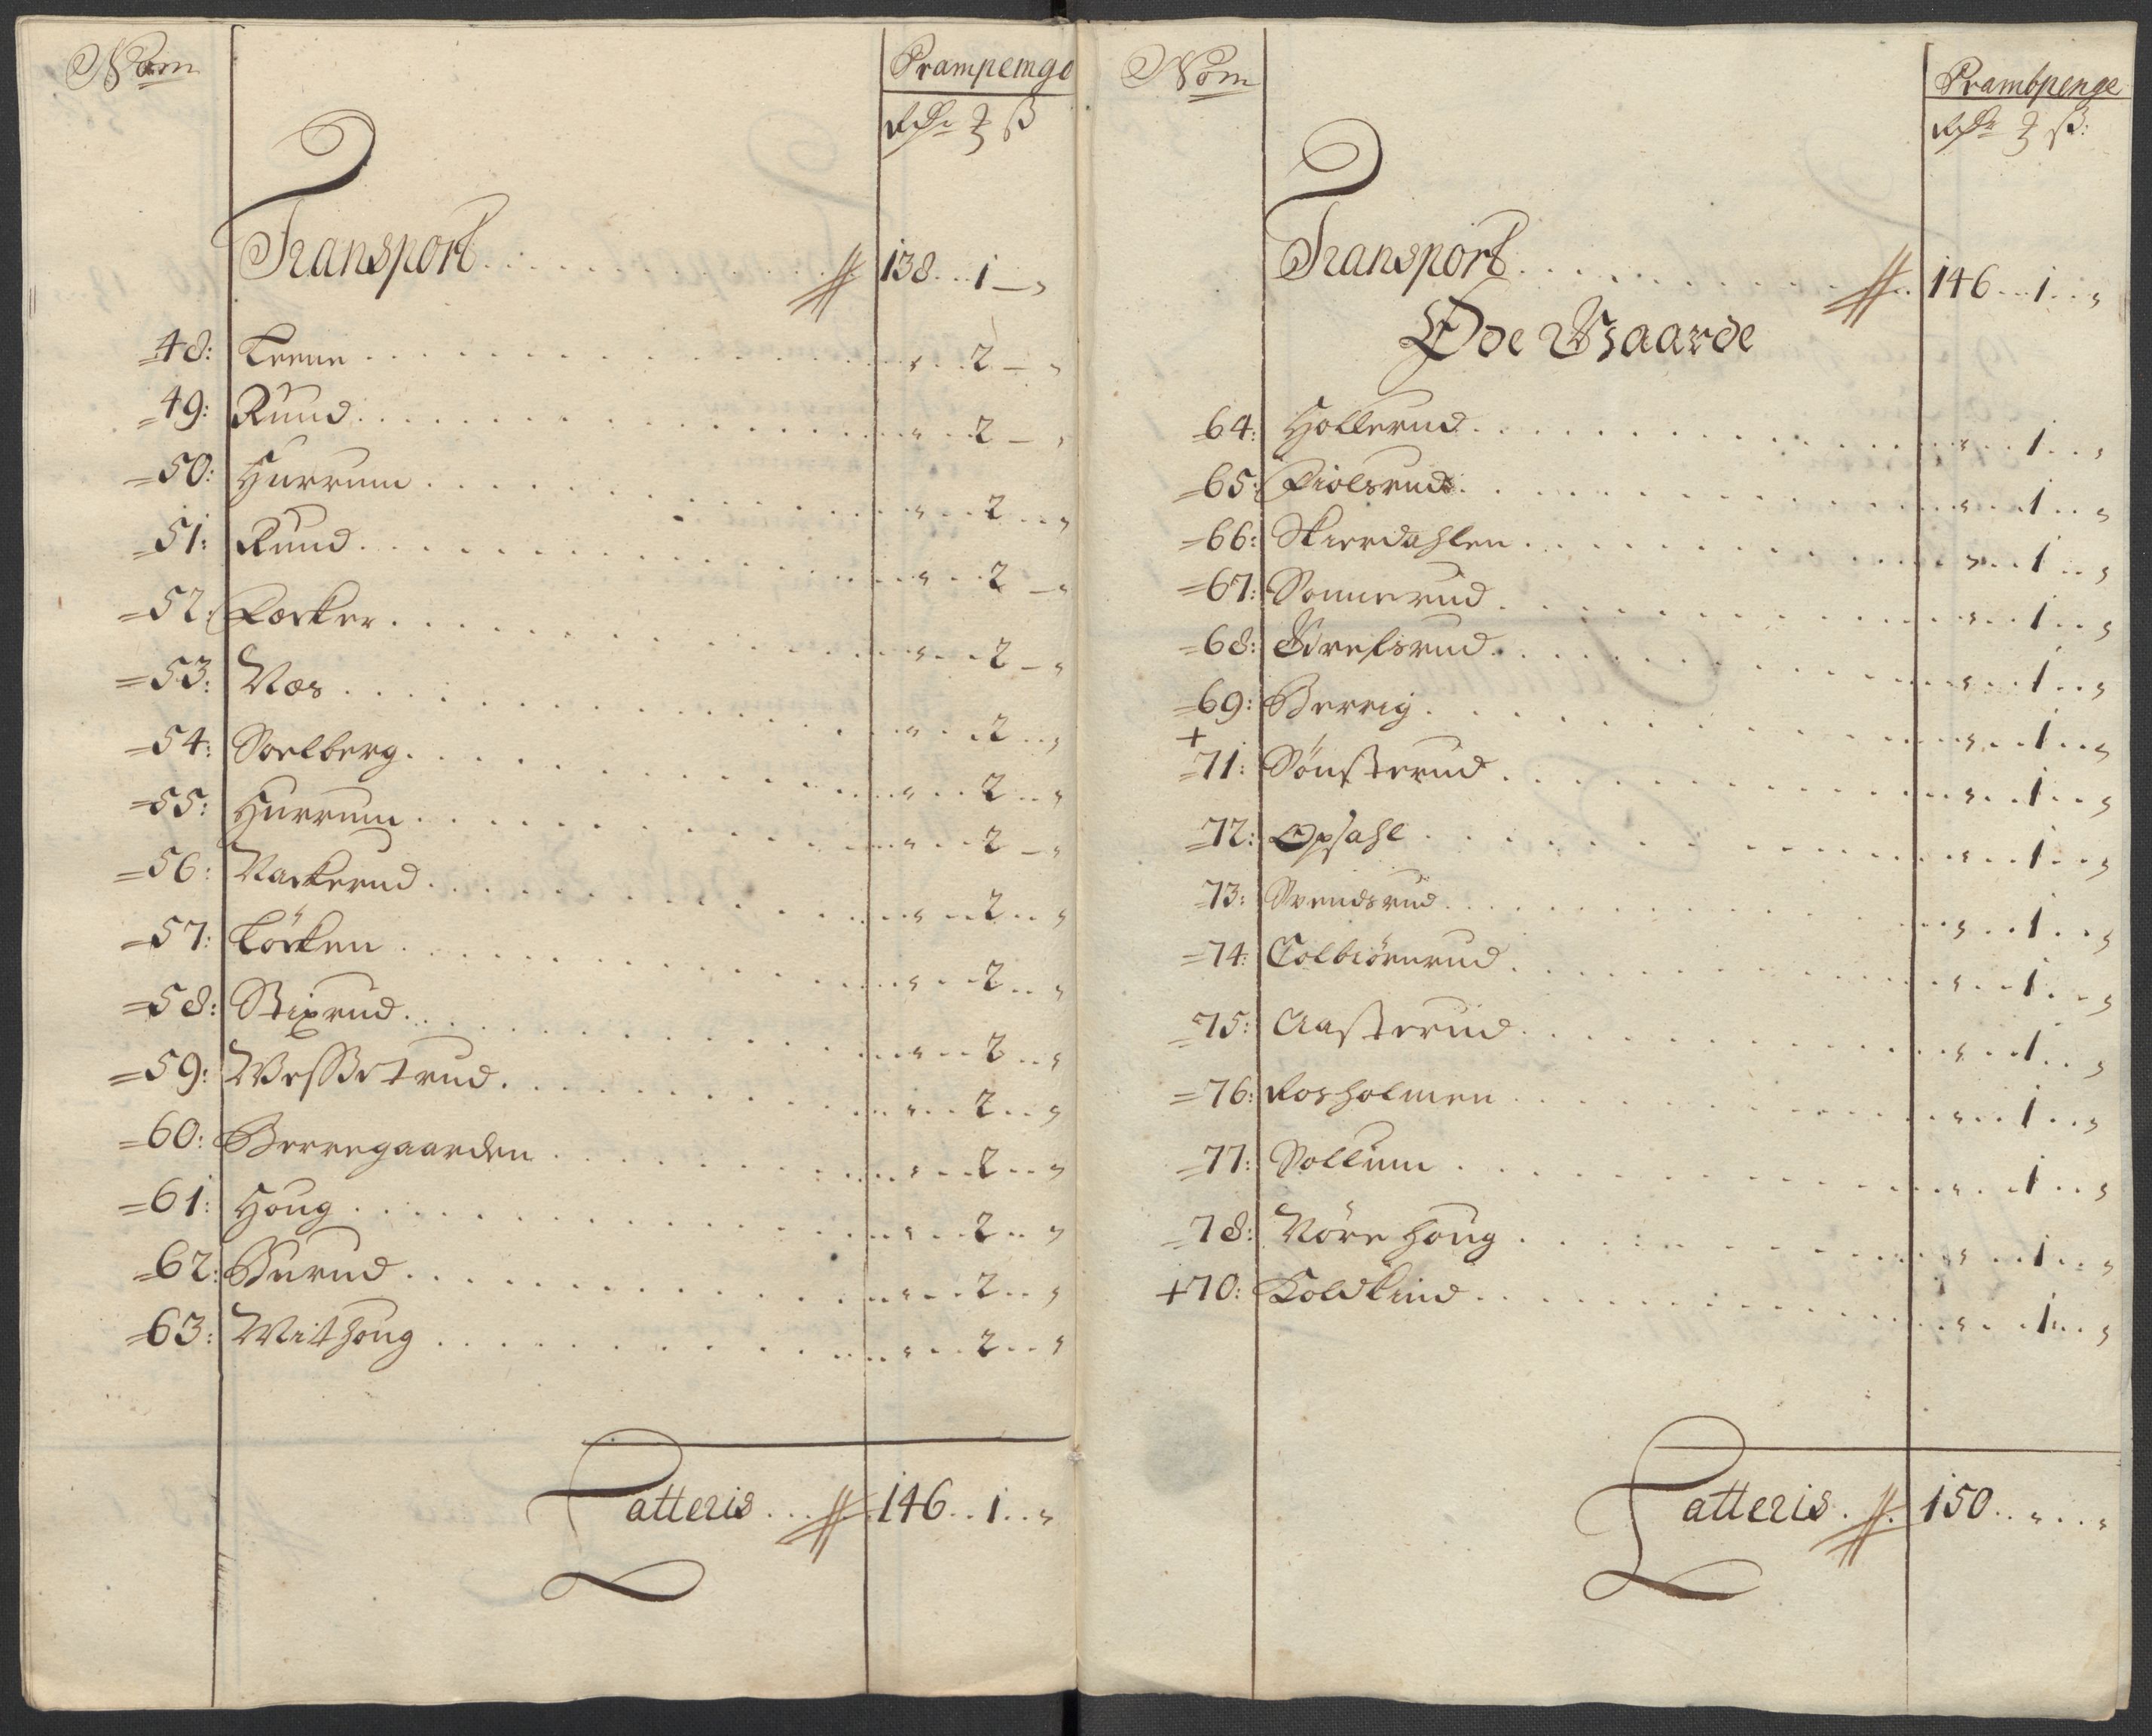 Nom Prampemge
Rdr ℥ ß
Transport 138 1 „
48: Teene „ 2 „
49: Ruud „ 2 „
50: Hurrum „ 2 „
51: Ruud „ 2 „
52: Færker „ 2 „
53: Næs „ 2 „
54: Soelberg „ 2 „
55: Hurrum „ 2 „
56: Nackerud „ 2 „
57: Körken „ 2 „
58: Stixrud „ 2 „
59: „ 2 „
60: Berregaarden „ 2 „
61: Houg „ 2 „
62: Burud „ 2 „
63: Withoug „ 2 „
Latteris 146 1 „
Nom Prambpenge
Rdr ℥ ß:
Transport 146 1 „
Øde Gaarde
64: Hollerud „ 1 „
65: Fiolsrud „ 1 „
66: Skierdahlen „ 1 „
67: Sonnerud „ 1 „
68: Grefsrud „ 1 „
69: Berrig „ 1 „
+
71: Sönsterud „ 1 „
72: Opsahl „ 1 „
73: Svendsrud „ 1 „
74: Colbiörnrud „ 1 „
75: Aasterud „ 1 „
76: Rosholmen „ 1 „
77: Sollum „ 1 „
78: Nöre houg „ 1 „
+70: Koldkind „ 1 „
Latteris 150 „ „